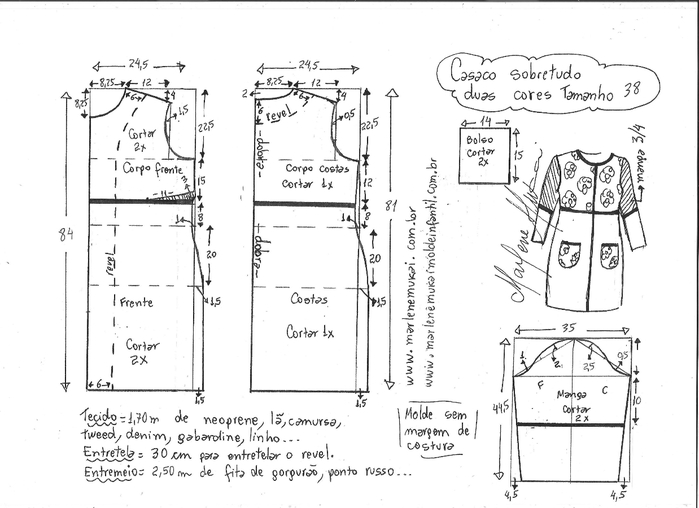 Casaco sobretudo
duas cores Tamanho 38
24,5
8,25
12
6
4
1,5
8,25
22,5
Cortar
2x
Corpo frente
11
3
15
1
8
84
20
revel
Frente
1,5
Cortar
2x
6
1,5
24,5
8,25
12
2
6
6
4
revel
0,5
22,5
dobra
Corpo costas
Cortar 1x
12
1
8
81
dobra
20
Costas
1,5
Cortar 1x
1,5
www.marlenemukai.com.br
www.marlenemukaimoldeinfantil.com.br
14
Bolso
Cortar
2x
15
Marlene Mukai
manga 3/4
35
1
2
2,5
0,5
F
C
10
Manga
Cortar
2x
44,5
4,5
4,5
Tecido = 1,70 m de neoprene, lã, camurça,
tweed, denim, gabardine, linho...
Entretela = 30 cm para entretelar o revel.
Entremeio = 2,50 m de fita de gorgurão, ponto russo...
Molde sem
margem de
costura